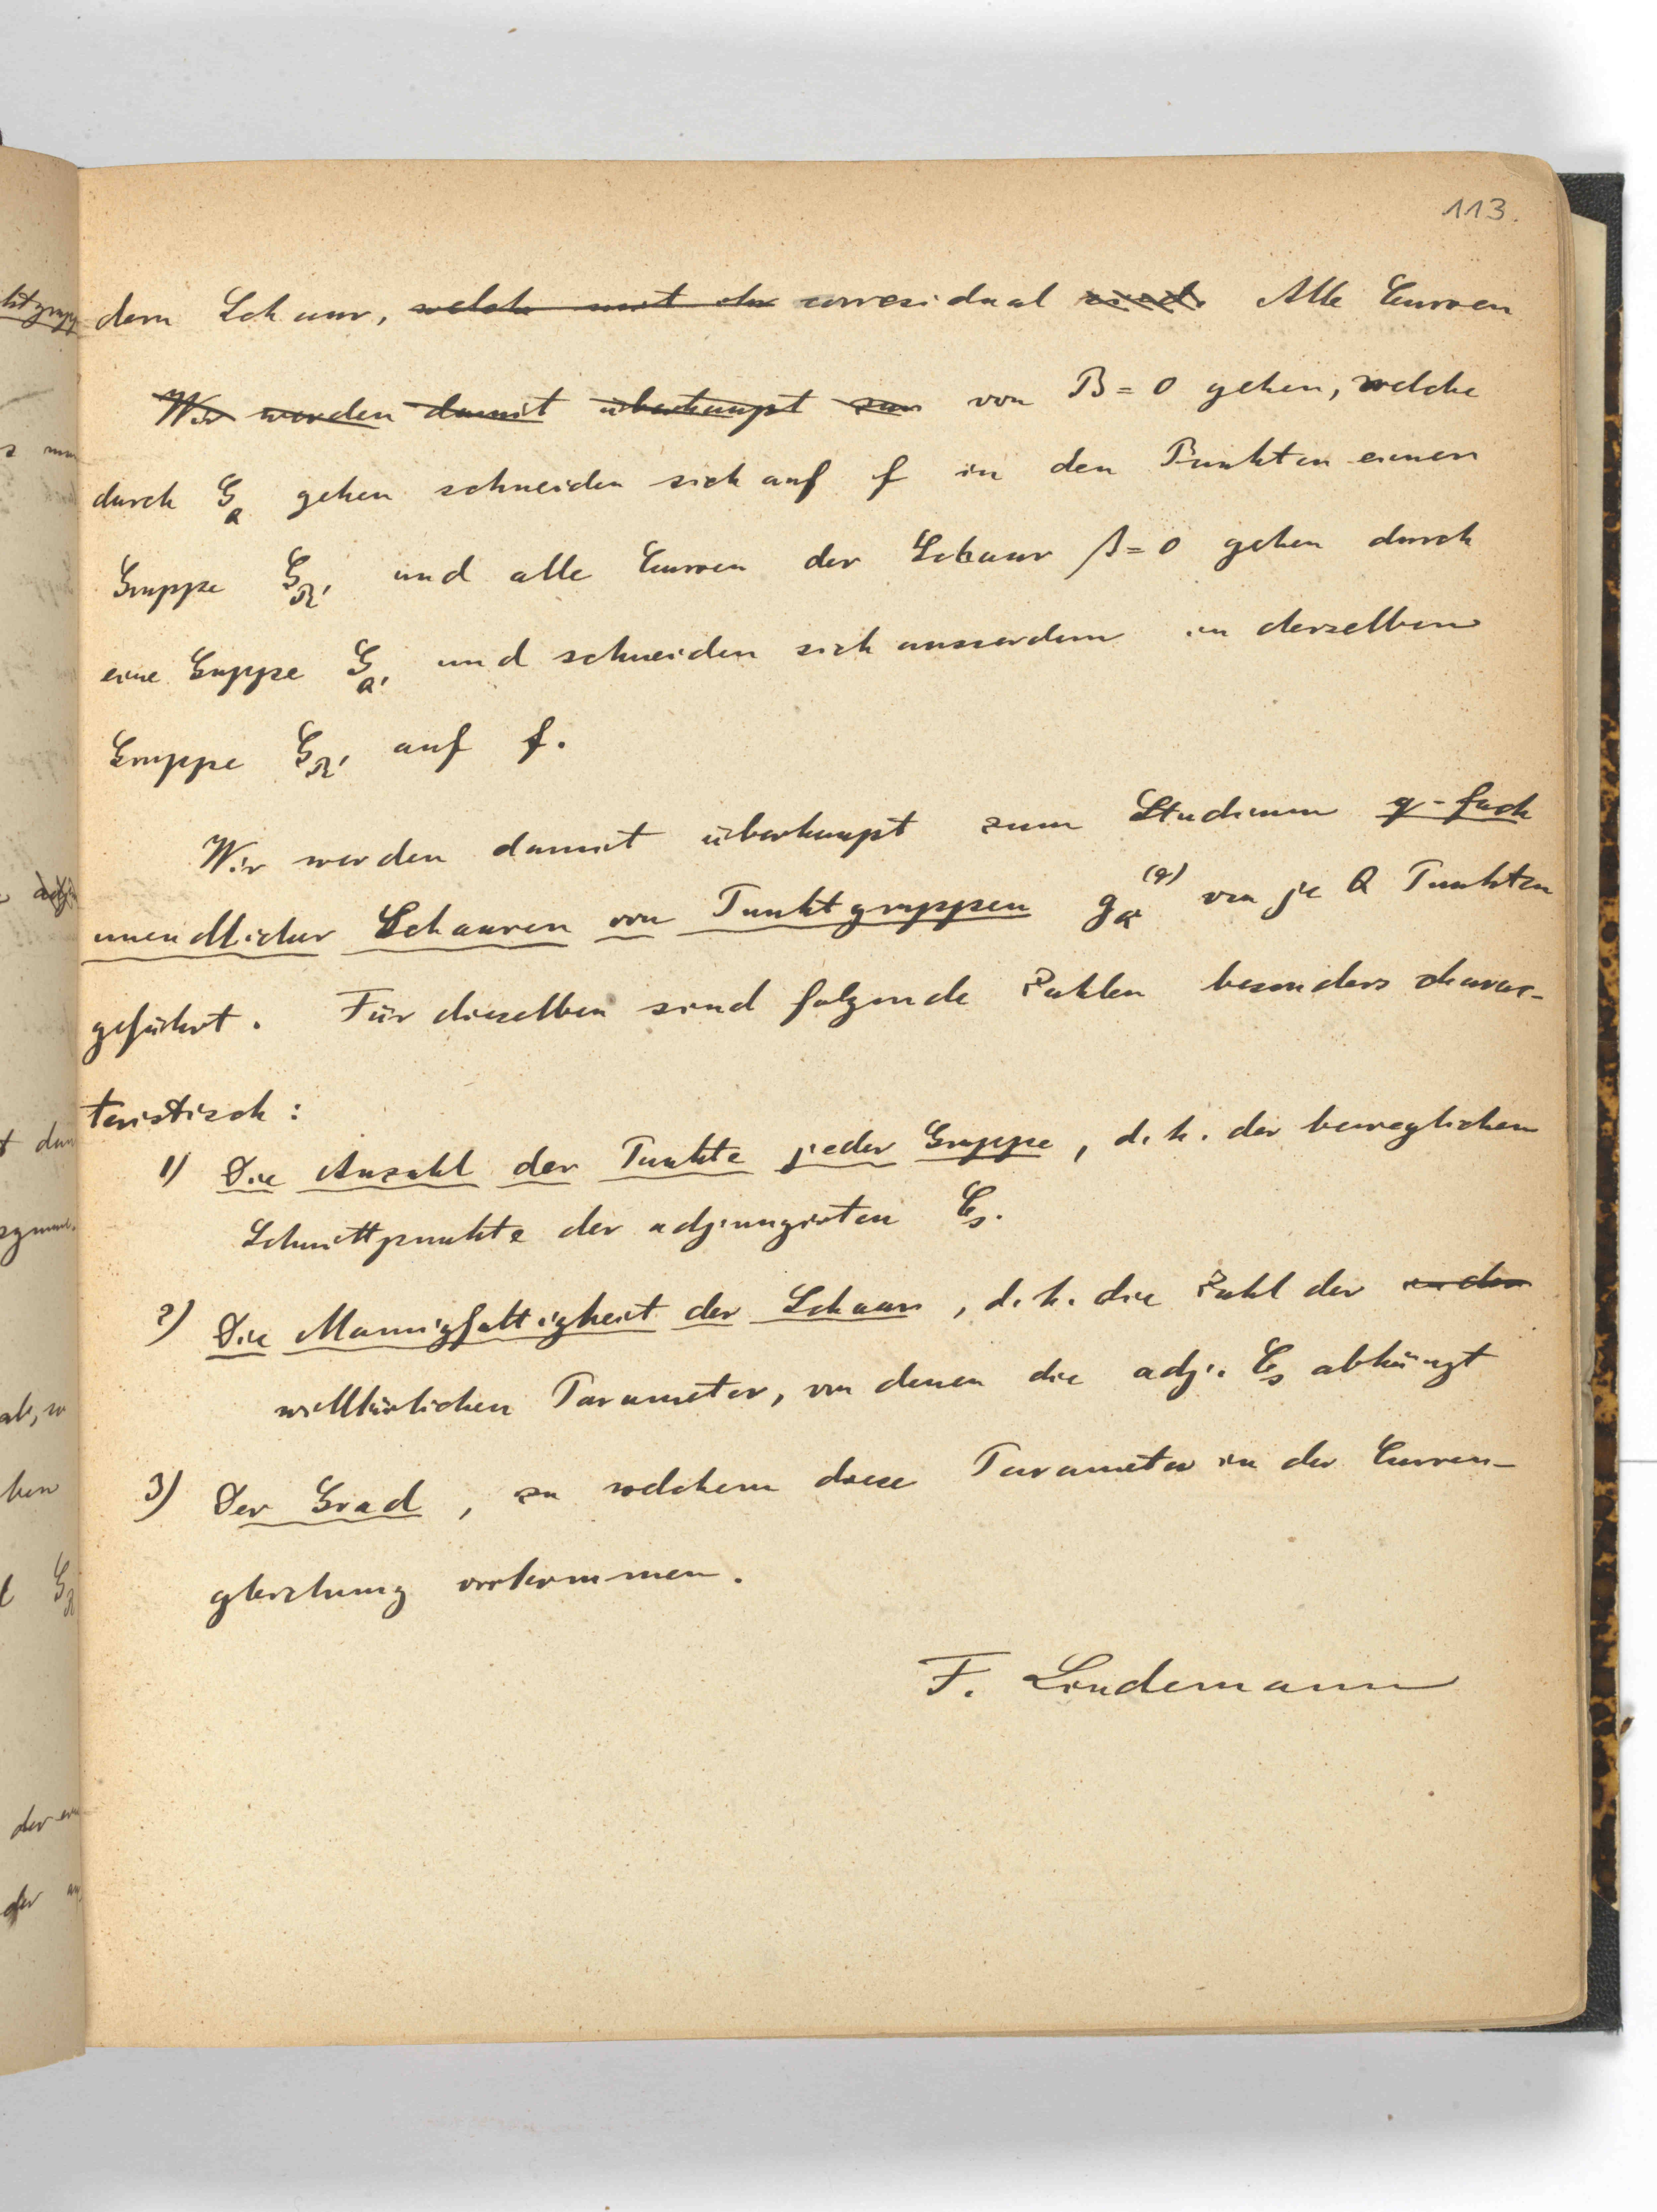 113.
dern Schaar, welche mit der corresidual sind. Alle Curven
Wir werden damit überhaupt zum von B = 0 gehen, welche
durch G_Q gehen schneiden sich auf f in den Punkten einer
Gruppe G_R' und alle Curven der Schaar β = 0 gehen durch
eine Gruppe G_Q' und schneiden sich ausserdem in derselben
Gruppe G_R' auf f.
Wir werden damit überhaupt zum Studium q-fach
unendlicher Schaaren von Punktgruppen g_Q^(q) von je Q Punkten
geführt. Für dieselben sind folgende Zahlen besonders charac-
teristisch:
1) Die Anzahl der Punkte jeder Gruppe, d.h. der beweglichen
Schnittpunkte der adjungirten C_s.
2) Die Mannigfaltigkeit der Schaar, d.h. die Zahl der in der
willkürlichen Parameter, von denen die adj. C_s abhängt
3) Der Grad, zu welchem diese Parameter in der Curven-
gleichung vorkommen.
F. Lindemann